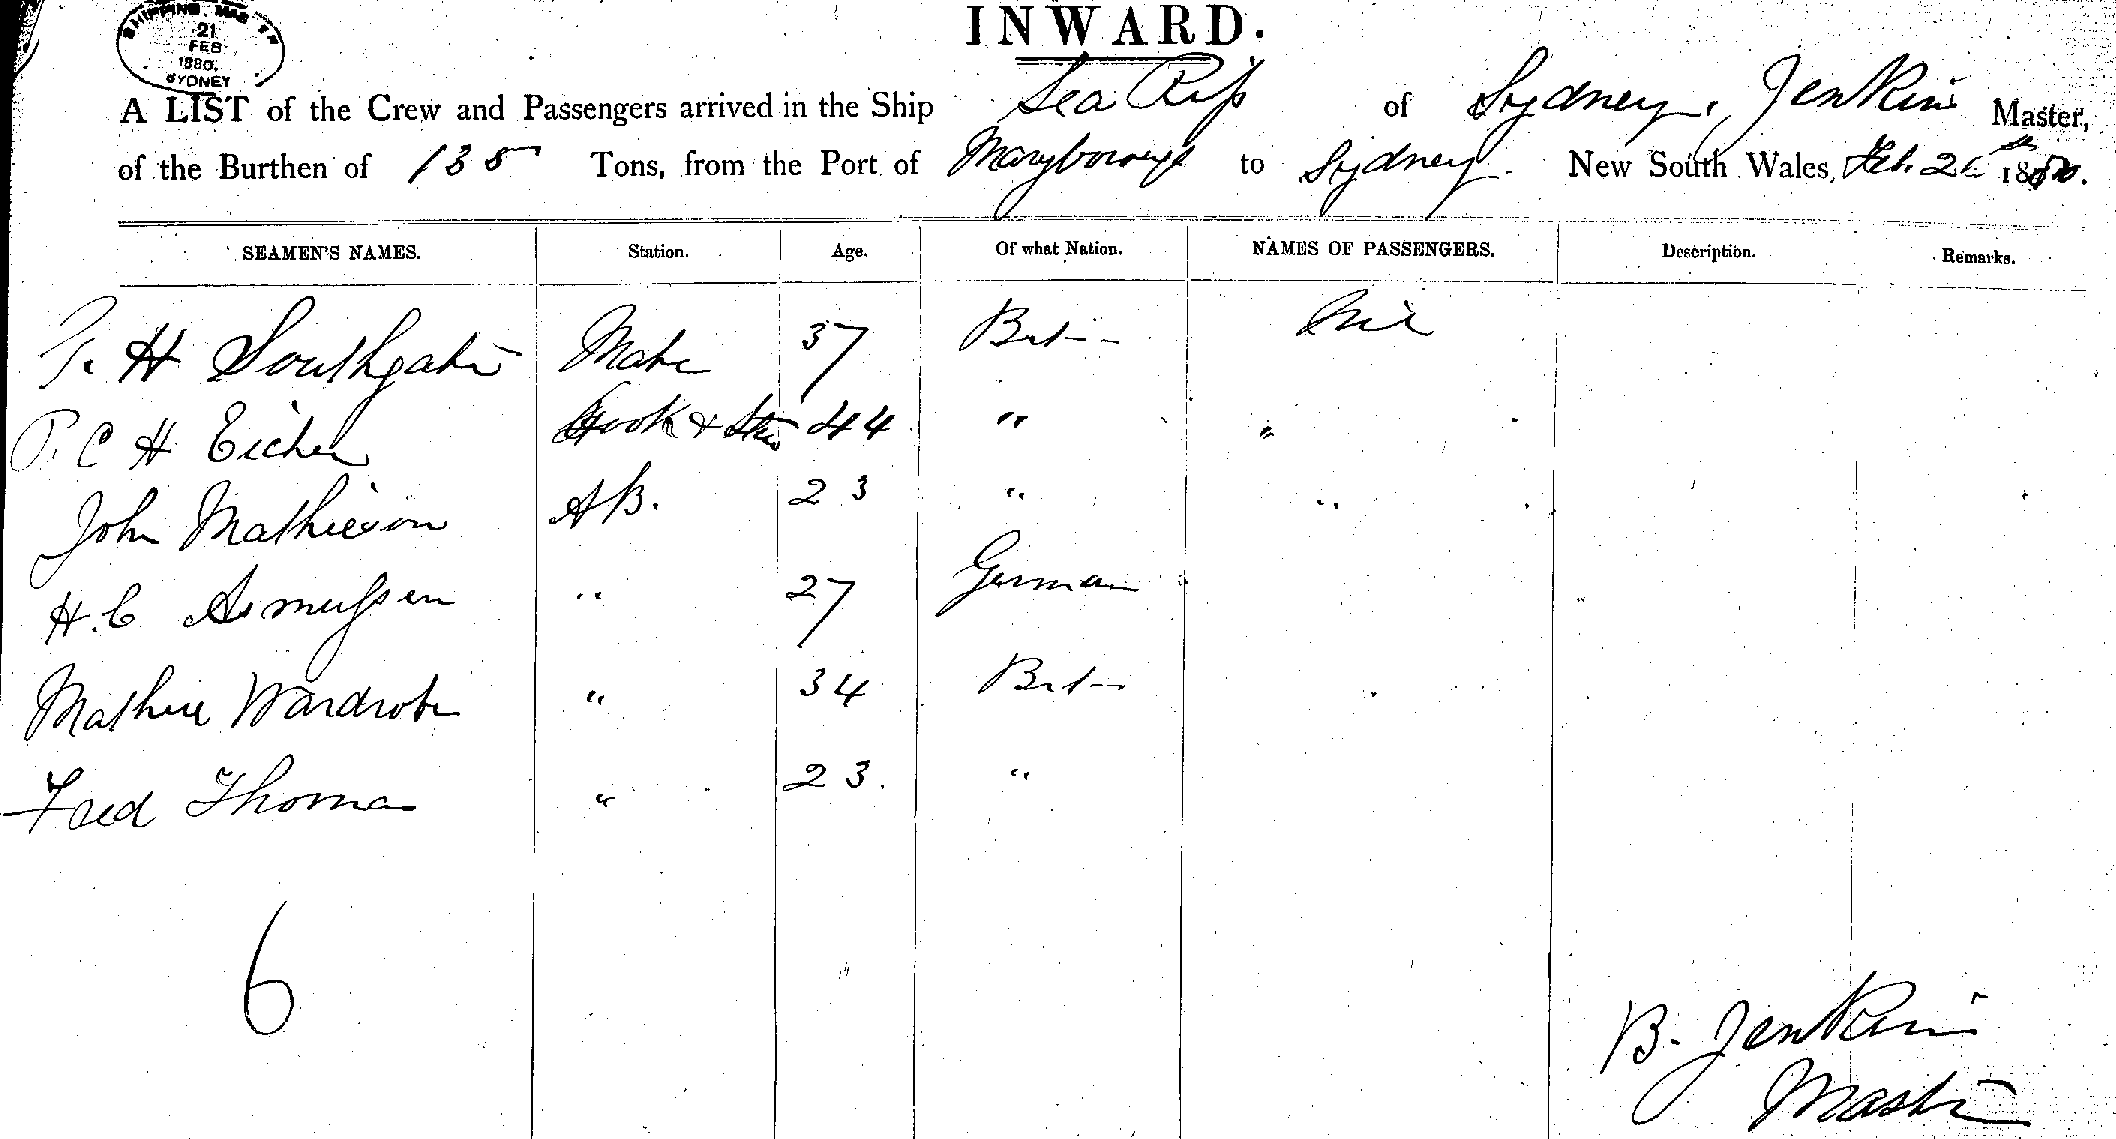 SHIPPING MASTER
21
FEB
1880
SYDNEY
INWARD.
A LIST of the Crew and Passengers arrived in the Ship Sea Rip of Sydney, Jenkins Master,
of the Burthen of 135 Tons, from the Port of Maryborough to Sydney. New South Wales, Feb. 21 1880.
SEAMEN'S NAMES. Station. Age. Of what Nation. NAMES OF PASSENGERS. Description. Remarks.
T. H Southgate Mate 37 Brit Nil
P. C H Eicher Cook & Stew 44 " "
John Mathieson AB. 23 " "
H. C Asmussen " 27 German
Mathew Wardrobe " 34 Brit
Fred Thomas " 23. "
6
B. Jenkins
Master